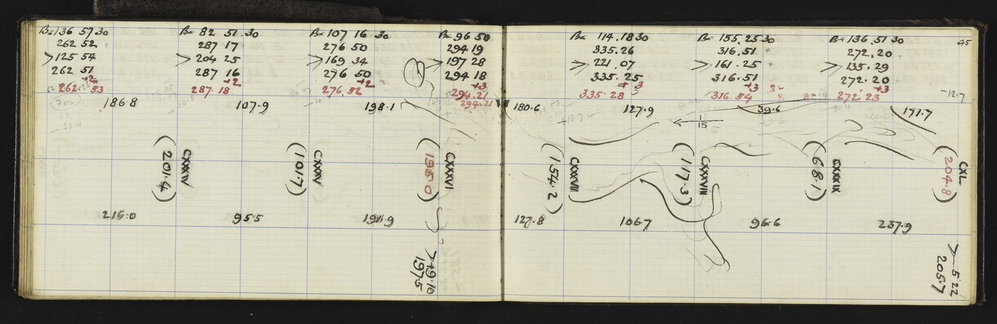 Bn 136 57 30
262 52
> 125 54
262 51
+2
262 53
Bn 82 51 30
287 17
> 204 25
287 16
+2
287.18
Bn 107 16 30
276 50
> 169 34
276 50
+2
276.52
Bn 96 50
294 19
> 197 28
294 18
+3
294.21
294.21
Bn 114.18 30
335.26
> 221.07
335.25
+3
335.28
Bn 155.25 30
316.51
> 161.25
316.51
+3
316.54
Bn 136.51 30
272.20
> 135.29
272.20
+3
272 23
45
-12.7
186.8
107.9
198.1
180.6
127.9
39.6
171.7
15
CXXXIV
(201.4)
CXXXV
(101.7)
CXXXVI
(195.0)
CXXXVII
(154.2)
CXXXVIII
(117.3)
CXXXIX
(68.1)
CXL
(204.8)
216.0
95.5
191.9
127.8
106.7
96.6
237.9
> 19.10
197.5
> 5 22
205.7